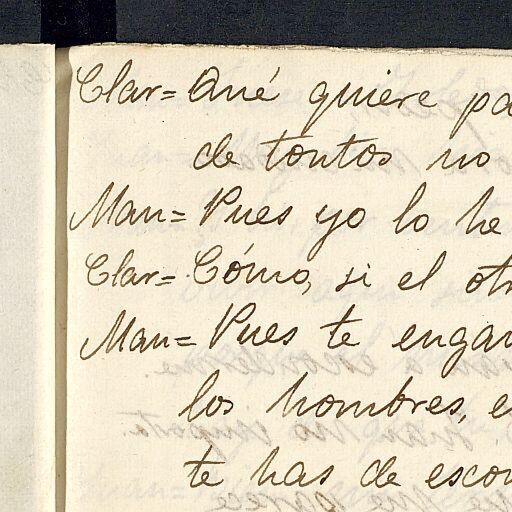 Clar= Qué quiere pa
de tontos no
Man= Pues yo lo he
Clar= Cómo, si el otr
Man= Pues te engañ
los hombres, e
te has de escon